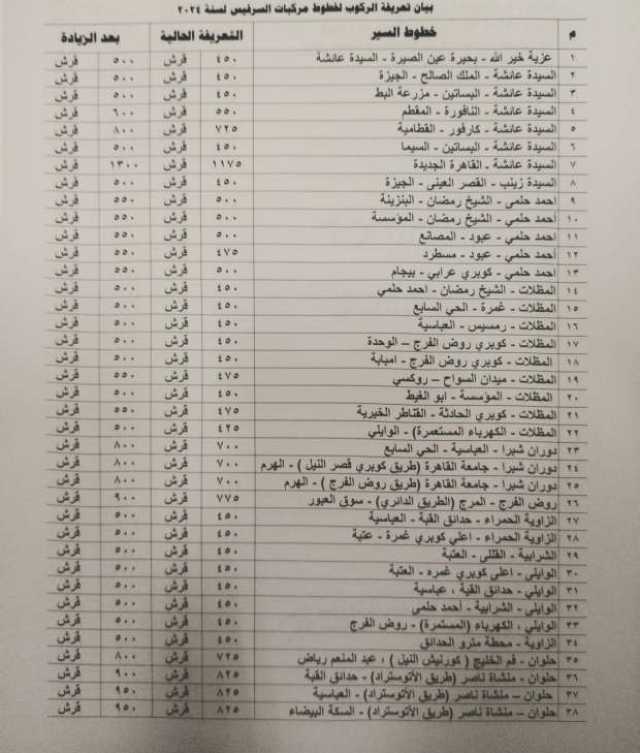 بيان تعريفة الركوب لخطوط مركبات السرفيس لسنة ٢٠٢٤
م خطوط السير التعريفة الحالية بعد الزيادة
١ عزبة خير الله - بحيرة عين الصيرة - السيدة عائشة ٤٥٠ قرش ٥٠٠ قرش
٢ السيدة عائشة - الملك الصالح - الجيزة ٤٥٠ قرش ٥٠٠ قرش
٣ السيدة عائشة - البساتين - مزرعة البط ٤٥٠ قرش ٥٠٠ قرش
٤ السيدة عائشة - النافورة - المقطم ٥٥٠ قرش ٦٠٠ قرش
٥ السيدة عائشة - كارفور - القطامية ٧٢٥ قرش ٨٠٠ قرش
٦ السيدة عائشة - البساتين - السيما ٤٥٠ قرش ٥٠٠ قرش
٧ السيدة عائشة - القاهرة الجديدة ١١٧٥ قرش ١٣٠٠ قرش
٨ السيدة زينب - القصر العينى - الجيزة ٤٥٠ قرش ٥٠٠ قرش
٩ احمد حلمي - الشيخ رمضان - البنزينة ٥٠٠ قرش ٥٥٠ قرش
١٠ احمد حلمي - الشيخ رمضان - المؤسسة ٥٠٠ قرش ٥٥٠ قرش
١١ احمد حلمي - عبود - المصانع ٥٠٠ قرش ٥٥٠ قرش
١٢ أحمد حلمي - عبود - مسطرد ٤٧٥ قرش ٥٥٠ قرش
١٣ احمد حلمي - كوبري عرابي - بيجام ٥٠٠ قرش ٥٥٠ قرش
١٤ المظلات - الشيخ رمضان - احمد حلمي ٤٥٠ قرش ٥٠٠ قرش
١٥ المظلات - غمرة - الحي السابع ٤٥٠ قرش ٥٠٠ قرش
١٦ المظلات - رمسيس - العباسية ٤٥٠ قرش ٥٠٠ قرش
١٧ المظلات - كوبري روض الفرج – الوحدة ٤٥٠ قرش ٥٠٠ قرش
١٨ المظلات - كوبري روض الفرج - امبابة ٤٥٠ قرش ٥٠٠ قرش
١٩ المظلات - ميدان السواح – روكسي ٤٧٥ قرش ٥٥٠ قرش
٢٠ المظلات - المؤسسة - ابو الغيط ٤٥٠ قرش ٥٠٠ قرش
٢١ المظلات - كوبري الحادثة - القناطر الخيرية ٤٧٥ قرش ٥٥٠ قرش
٢٢ المظلات - الكهرباء المستعمرة) - الوايلي ٤٢٥ قرش ٥٠٠ قرش
٢٣ دوران شبرا - العباسية - الحي السابع ٧٠٠ قرش ٨٠٠ قرش
٢٤ دوران شبرا - جامعة القاهرة (طريق كوبري قصر النيل ) - الهرم ٧٠٠ قرش ٨٠٠ قرش
٢٥ دوران شبرا - جامعة القاهرة (طريق روض الفرج ) - الهرم ٧٠٠ قرش ٨٠٠ قرش
٢٦ روض الفرج - المرج (الطريق الدائري) - سوق العبور ٧٧٥ قرش ٩٠٠ قرش
٢٧ الزاوية الحمراء - حدائق القبة - العباسية ٤٥٠ قرش ٥٠٠ قرش
٢٨ الزاوية الحمراء - اعلي كوبري غمرة - عتبة ٤٥٠ قرش ٥٠٠ قرش
٢٩ الشرابية - القللى - العتبة ٤٥٠ قرش ٥٠٠ قرش
٣٠ الوايلي - اعلى كوبري غمره - العتبة ٤٥٠ قرش ٥٠٠ قرش
٣١ الوايلي - حدائق القبة ، عباسية ٤٥٠ قرش ٥٠٠ قرش
٣٢ الوايلي - الشرابية - أحمد حلمى ٤٥٠ قرش ٥٠٠ قرش
٣٣ الوايلي ، الكهرباء (المستمرة) - روض الفرج ٤٥٠ قرش ٥٠٠ قرش
٣٤ الزاوية - محطة مترو الحدائق ٤٥٠ قرش ٥٠٠ قرش
٣٥ حلوان - فم الخليج ( كورنيش النيل ) ، عبد المنعم رياض ٧٢٥ قرش ٨٠٠ قرش
٣٦ حلوان - منشاة ناصر (طريق الأتوستراد) - حدائق القبة ٨٢٥ قرش ٩٠٠ قرش
٣٧ حلوان – منشاة ناصر (طريق الأتوستراد) - العباسية ٨٢٥ قرش ٩٥٠ قرش
٣٨ حلوان – منشاة ناصر (طريق الأتوستراد) - السكة البيضاء ٨٢٥ قرش ٩٥٠ قرش